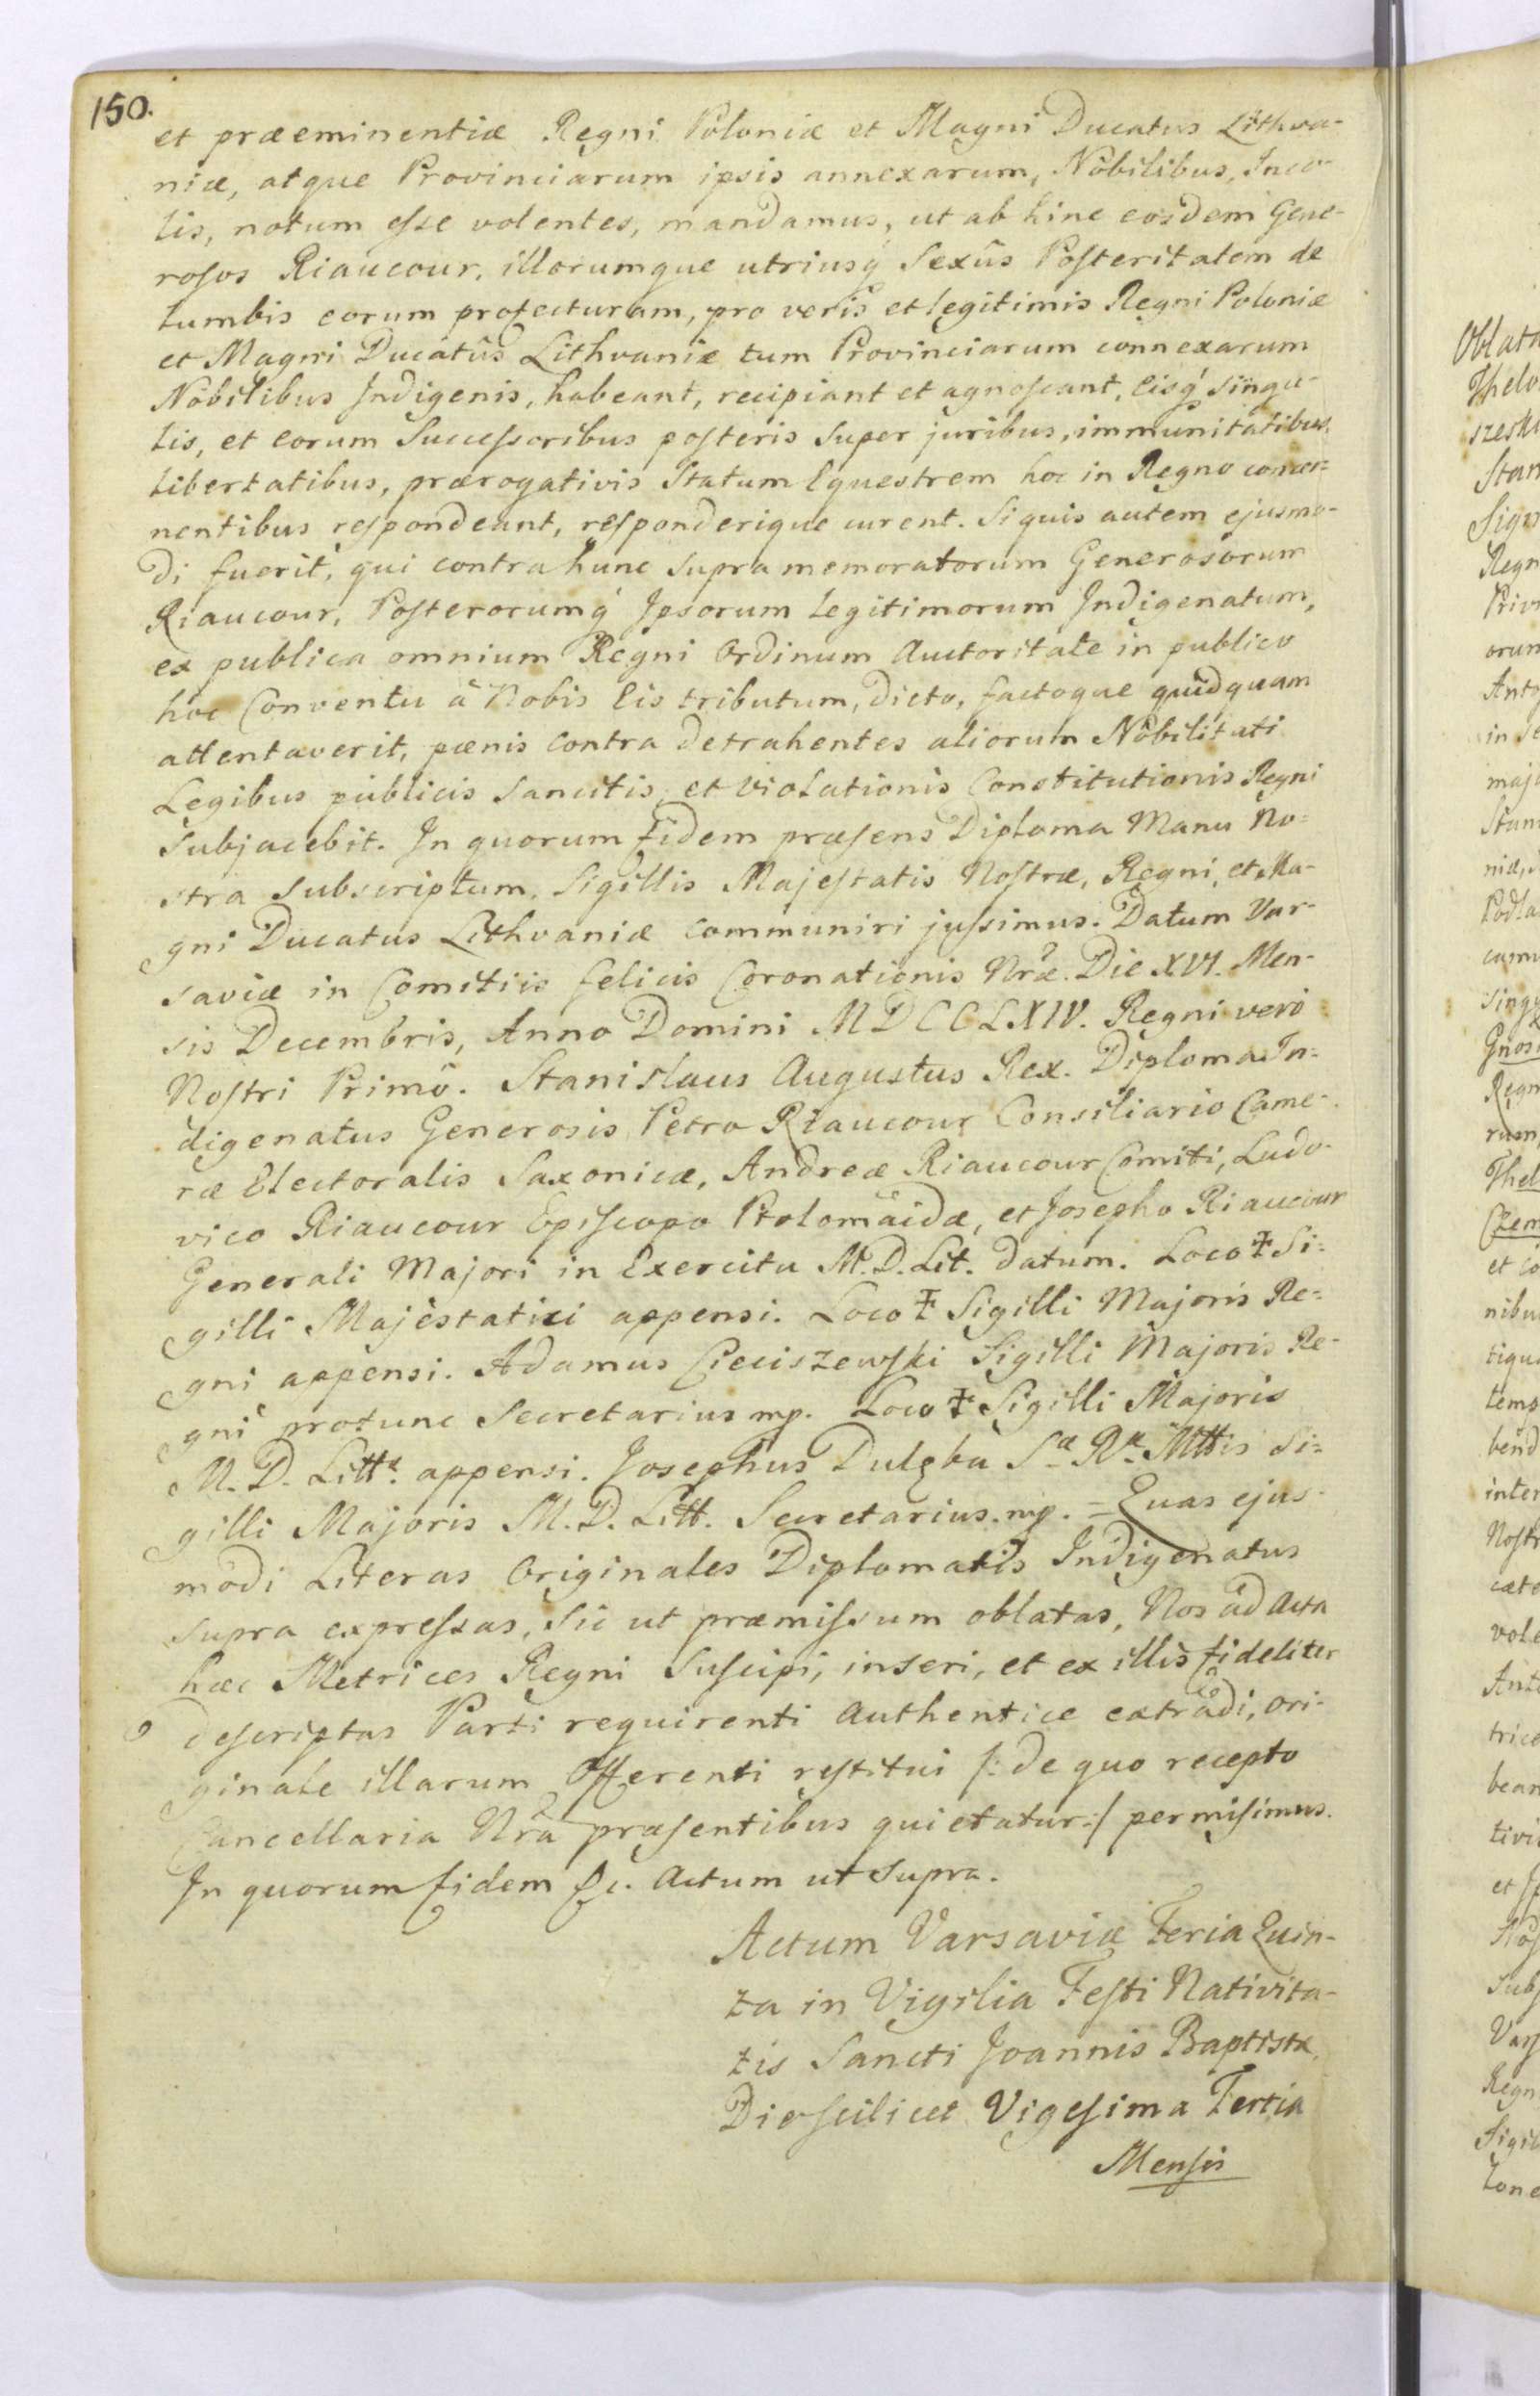 150.
et præeminentiæ Regni Poloniæ et Magni Ducatus Lithva-
niæ, atque Provinciarum ipsis annexarum, Nobilibus, Inco-
lis, notum eſse volentes, mandamus, ut ab hinc eosdem Gene-
roſos Riaucour, illorumque utriusq́ Sexûs Poſteritatem de
lumbis eorum profecturam, pro veris et legitimis Regni Poloniæ
et Magni Ducatûs Lithvaniæ tum Provinciarum connexarum
Nobilibus Indigenis, habeant, recipiant et agnoſcant, Eisq́ singu-
lis, et eorum Succeſsoribus poſteris super juribus, immunitatibus,
libertatibus, prærogativis Statum Equestrem hoc in Regno concer=
nentibus reſpondeant, reſponderique curent. Siquis autem ejusmo-
di fuerit, qui contra hunc supra memoratorum Generosorum
Riaucour, Poſterorumq́ Ipsorum legitimorum Indigenatum,
ex publica omnium Regni Ordinum Auctoritate in publico
hoc Conventu â Nobis Eis tributum, dicto, factoque quidquam
attentaverit, pœnis contra detrahentes aliorum Nobilitati
Legibus publicis Sancitis, et violationis Constitutionis Regni
Subjacebit. In quorum fidem præſens Diploma Manu No=
stra subscriptum, Sigillis Majeſtatis Noſtræ, Regni, et Ma-
gni Ducatus Lithvaniæ communiri juſsimus. Datum Var-
saviæ in Comitiis felicis Coronationis Nræ. Die XVI. Men-
sis Decembris, Anno Domini MDCCLXIV. Regni verò
Noſtri Primô. Stanislaus Augustus Rex. Diploma In=
digenatus Generosis Petro Riaucour Consiliario Came-
ræ Electoralis Saxonicæ, Andreæ Riaucour Comiti, Ludo-
vico Riaucour Epiſcopo Ptolomäidæ, et Josepho Riaucour
Generali Majori in Exercitu M.D.Lit. datum. Loco ‡ Si=
gilli Majestatici appensi. Loco ‡ Sigilli Majoris Re=
gni appensi. Adamus Cieciszewſki Sigilli Majoris Re-
gni protunc Secretarius mp. Loco ‡ Sigilli Majoris
M.D. Littæ. appensi. Josephus Dulęba Sæ Ræ Mttis Si=
gilli Majoris M.D. Litt. Secretarius. mp. = Quas ejus-
modi Literas Originales Diplomatis Indigenatus
supra expreſsas, sic ut præmiſsum oblatas, Nos ad Acta
hæc Metrices Regni Suſcipi, inseri, et ex illis fideliter
deſcriptas Parti requirenti authentice extradi, ori-
ginale illarum Offerenti reſtitui /: de quo recepto
Cancellaria Nrã præſentibus quietatur:/ permiſimus.
In quorum fidem &c. Actum ut supra.
Actum Varsaviæ Feria Quin-
ta in Vigilia Feſti Nativita-
tis Sancti Joannis Baptistæ,
Die ſcilicet Vigeſima Tertia
Menſis